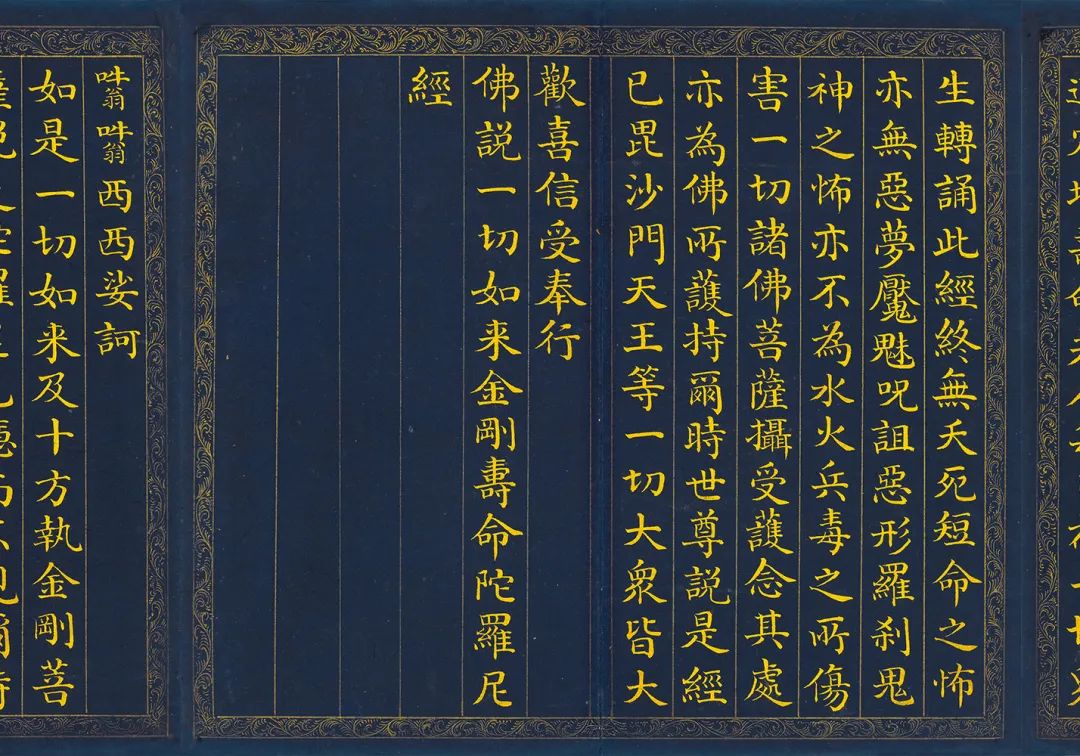 生轉誦此經終無夭死短命之怖
亦無惡夢魘魅呪詛惡形羅剎鬼
神之怖亦不為水火兵毒之所傷
害一切諸佛菩薩攝受護念其處
亦為佛所護持爾時世尊説是經
已毘沙門天王等一切大眾皆大
歡喜信受奉行
佛説一切如来金剛壽命陀羅尼
經
吽翁吽翁西西娑訶
如是一切如来及十方執金剛菩